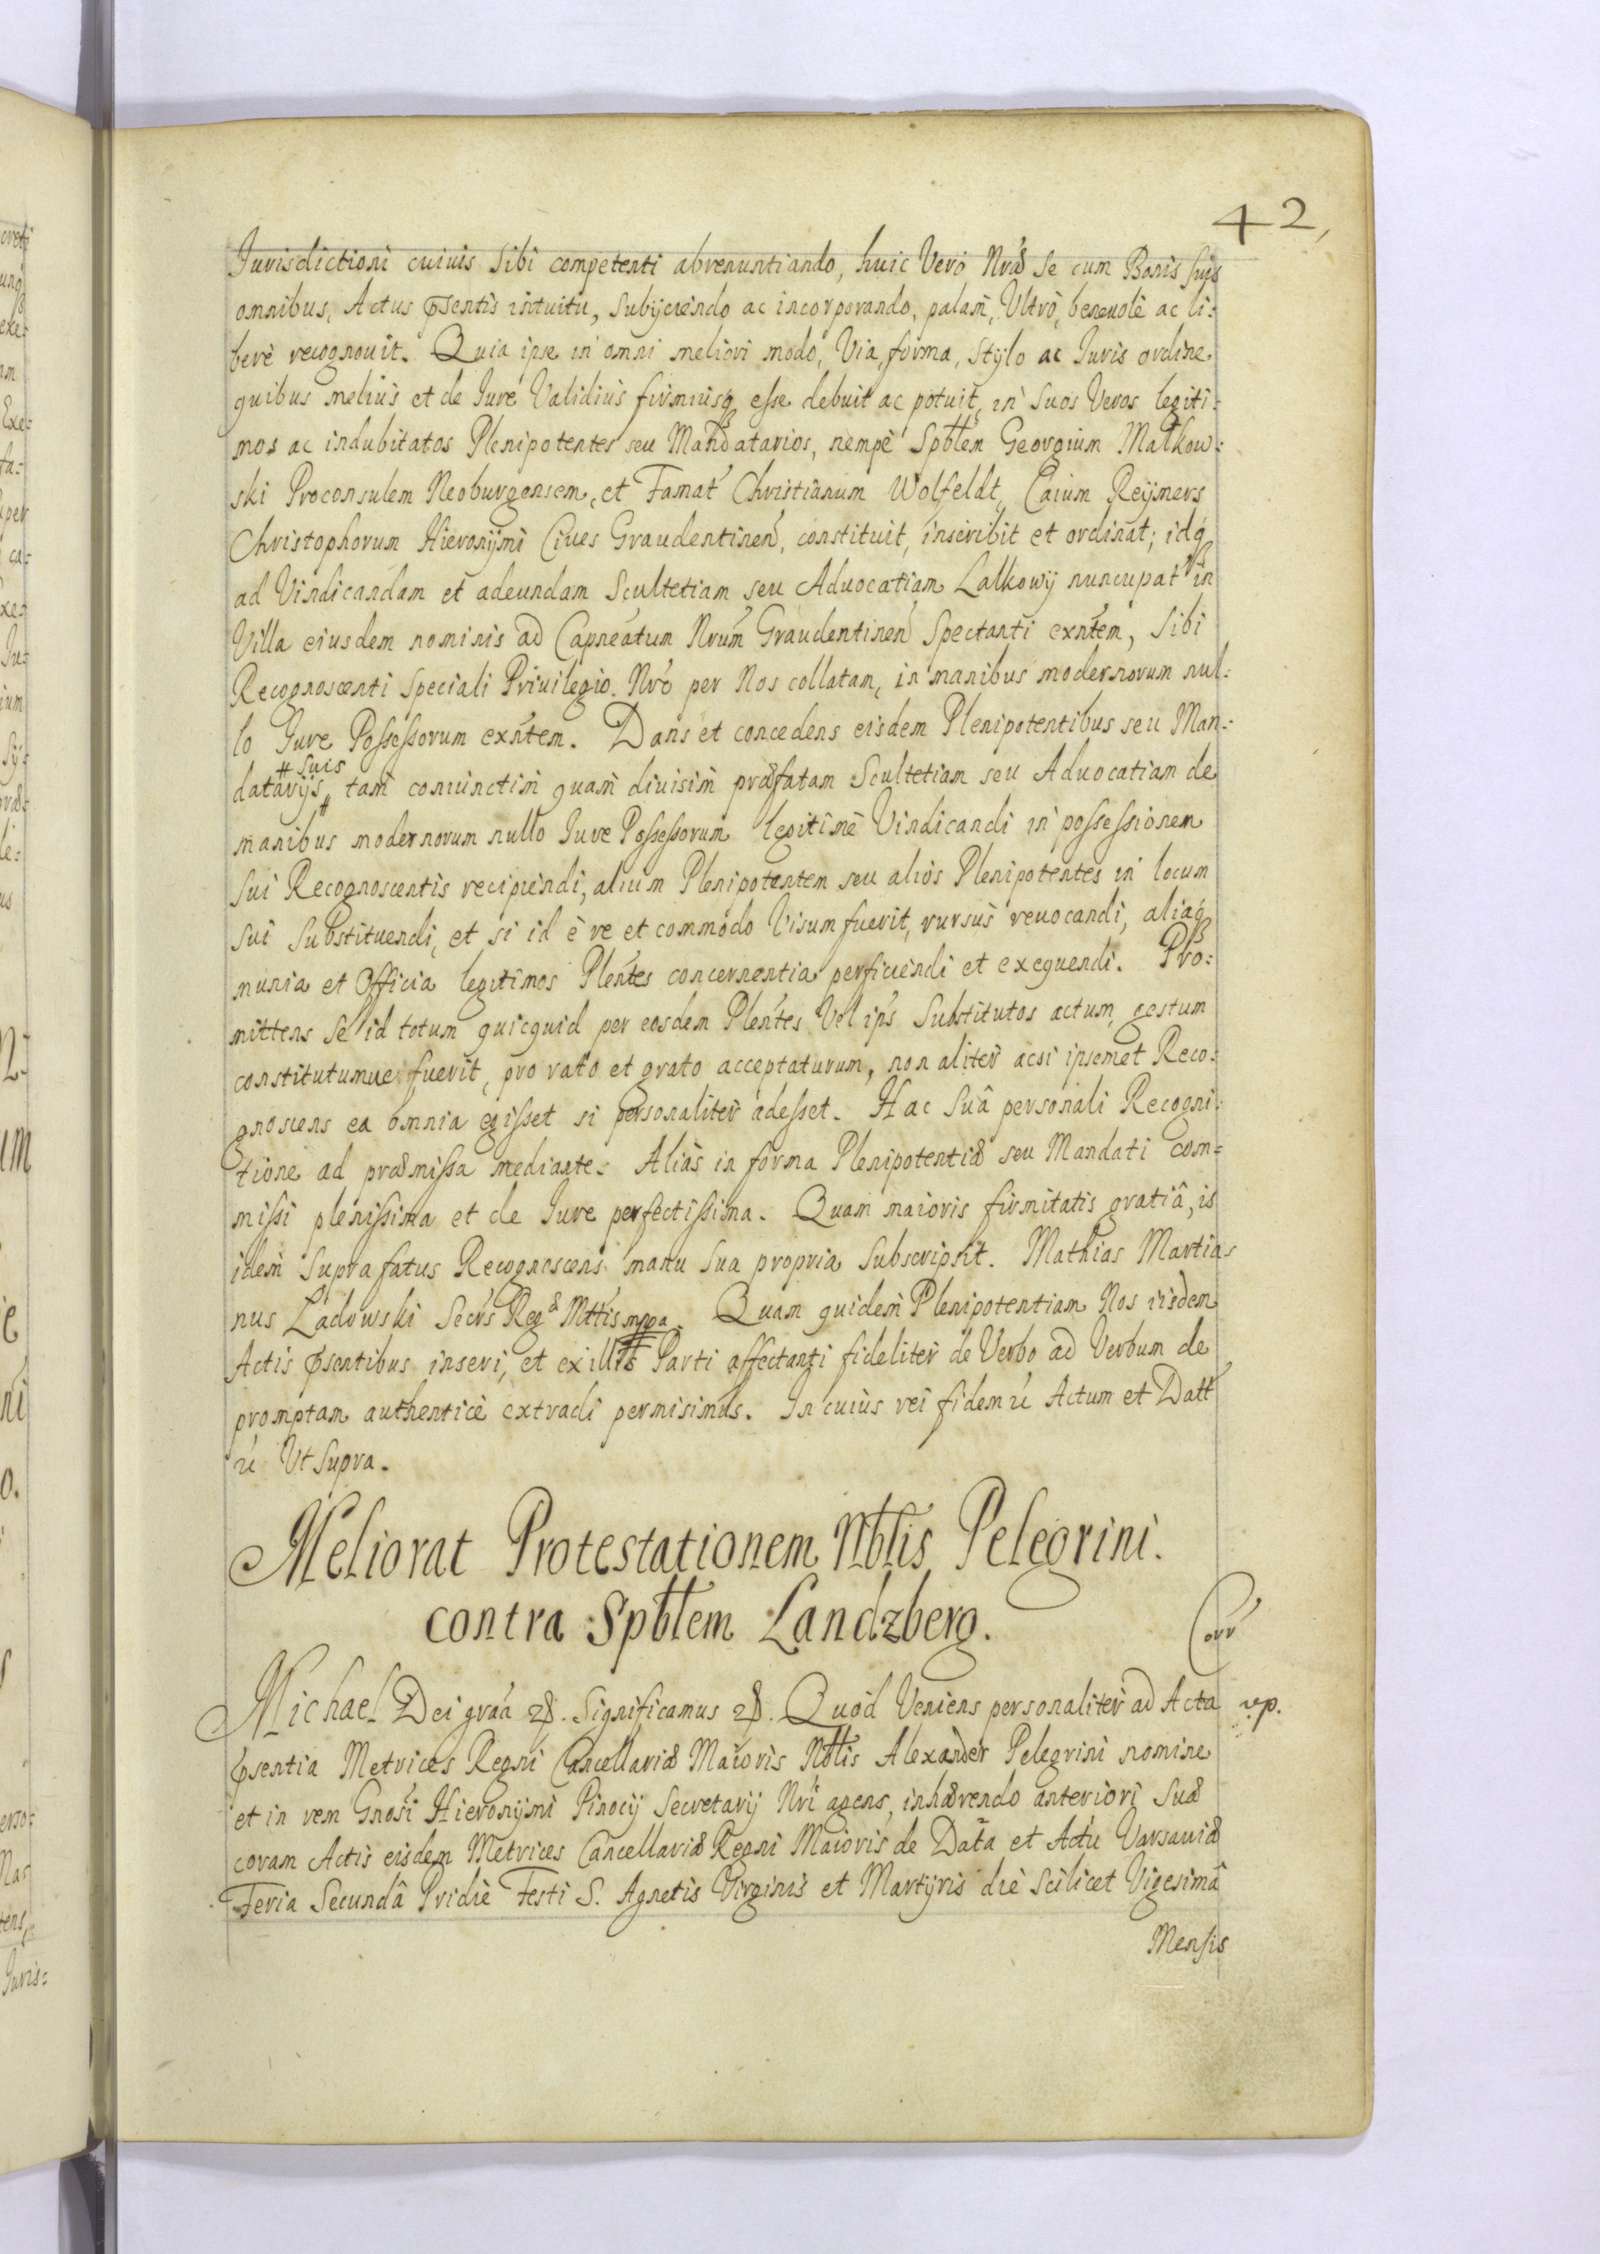 42,
Jurisdictioni cuiuis sibi competenti abrenuntiando, huic Vero Nræ se cum Bonis suis
omnibus, Actus pñsentis intuitu, subijciendo ac incorporando, palàm, Ultrò, beneuolè ac li:
berè recognouit. Quia ipse in omni meliori modo, Via, forma, stylo ac Juris ordine
quibus meliùs et de Jure Validiùs firmiusq esse debuit ac potuit, in suos Veros legiti:
mos ac indubitatos Plenipotentes seu Mandatarios, nempè Spbtem Georgium Malkow:
ski Proconsulem Neoburgensem, et Famat Christianum Wolfeldt, Caium Reymers
Christophorum Hieronymi Ciues Graudentinen, constituit, inscribit et ordinat; idq
ad Vindicandam et adeundam Scultetiam seu Aduocatiam Lalkowy nuncupat in
Villa eiusdem nominis ad Capneatum Nrum Graudentinen Spectanti exntem, sibi
Recognoscenti speciali Priuilegio Nrò per Nos collatam, in manibus modernorum nul:
lo Jure Possessorum exntem. Dans et concedens eisdem Plenipotentibus seu Man:
# suis
datarijs # tam coniunctim quam diuisim præfatam Scultetiam seu Aduocatiam de
manibus modernorum nullo Jure Possessorum legitimè Vindicandi in possessionem
sui Recognoscentis recipiendi, alium Plenipotentem seu aliòs Plenipotentes in locum
sui substituendi, et si id è re et commodo Visum fuerit, rursus reuocandi, aliaq
munia et Officia legitimos Plentes concernentia perficiendi et exequendi. Pro:
mittens se id totum quicquid per eosdem Plentes Vel ips Substitutos actum, gestum
constitutumue fuerit, pro rato et grato acceptaturum, non aliter acsi ipsemet Reco:
gnoscens ea omnia egisset si personaliter adesset. Hac suâ personali Recogni:
tione ad præmissa mediante. Aliàs in forma Plenipotentiæ seu Mandati com:
missi plenissima et de Jure perfectissima. Quam maioris firmitatis gratiâ, is
idem suprafatus Recognoscens manu sua propria subscripsit. Mathias Martia
nus Ladowski Secrs Regæ Mttis mpa. Quam quidem Plenipotentiam Nos iisdem
Actis pñsentibus inseri, et ex illis Parti affectanti fideliter de Verbo ad Verbum de
promptam authenticè extradi permisimus. In cuius rei fidem ur Actum et Datt
ur Ut supra.
Meliorat Protestationem Nbtis Pelegrini.
contra Spbtem Landzberg.
Corr
Michael Dei gráa &. Significamus &. Quòd Veniens personaliter ad Acta
rep.
pñsentia Metrices Regni Cancellariæ Maioris Nbtis Alexander Pelegrini nomine
et in rem Gnosi Hieronymi Pinocij Secretarij Nri agens, inhærendo anteriori suæ
coram Actis eisdem Metrices Cancellariæ Regni Maioris de Data et Actu Varsauiæ
Feria Secundâ Pridie Festi S. Agnetis Virginis et Martyris die scilicet Vigesimâ
Mensis